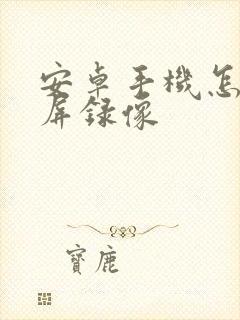 安卓手機怎
屏錄像
寶鹿